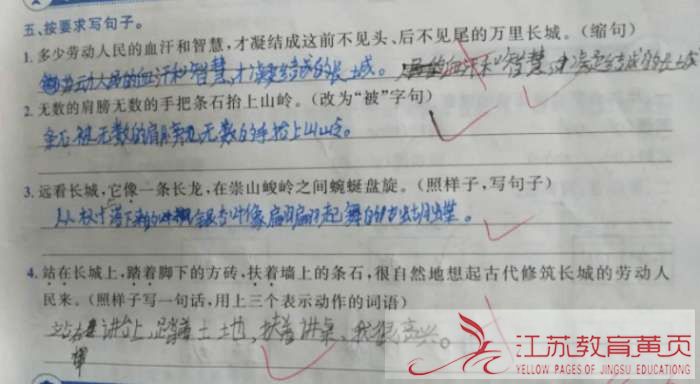 五、按要求写句子。
1. 多少劳动人民的血汗和智慧,才凝结成这前不见头、后不见尾的万里长城。(缩句)
劳动人民的血汗和智慧,才凝结成的长城。 血汗和智慧,才凝结成的长城
2. 无数的肩膀无数的手把条石抬上山岭。(改为“被”字句)
条石被无数的肩膀无数的手抬上山岭。
3. 远看长城,它像一条长龙,在崇山峻岭之间蜿蜒盘旋。(照样子,写句子)
从树上落下来的银杏叶像扇扇起舞的蝴蝶。
4. 站在长城上,踏着脚下的方砖,扶着墙上的条石,很自然地想起古代修筑长城的劳动人
民来。(照样子写一句话,用上三个表示动作的词语)
站在讲台上,踏着土地,扶着讲桌,我很高兴。
江苏教育黄页
YELLOW PAGES OF JINGSU EDUCATIONG